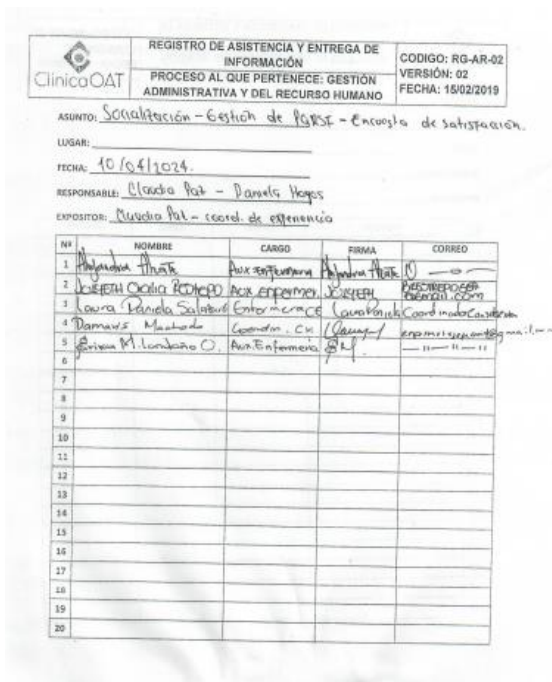 ClínicaOAT
REGISTRO DE ASISTENCIA Y ENTREGA DE
INFORMACIÓN
PROCESO AL QUE PERTENECE: GESTIÓN
ADMINISTRATIVA Y DEL RECURSO HUMANO
CODIGO: RG-AR-02
VERSIÓN: 02
FECHA: 15/02/2019
ASUNTO: Socialización - Gestión de PQRSF - Encuesta de satisfacción.
LUGAR:
FECHA: 10/04/2024.
RESPONSABLE: Claudia Paz - Daniela Hoyos
EXPOSITOR: Claudia Paz - coord. de experiencia
Nº NOMBRE CARGO FIRMA CORREO
1 Alejandra Aux enfermera Alejandra
2 Aux enfermer
3 Laura Daniela Enfermera CE Laura Daniela
4 Damaris Machado Coordin. CX
5 M. Londoño O. Aux. Enfermeria
6
7
8
9
10
11
12
13
14
15
16
17
18
19
20